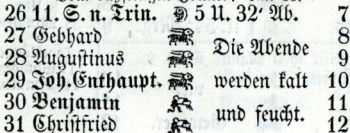 26 11. S. n. Trin. 5 U. 32′ Ab. 7
27 Gebhard 8
28 Augustinus Die Abende 9
29 Joh. Enthaupt. werden kalt 10
30 Benjamin und feucht. 11
31 Christfried 12